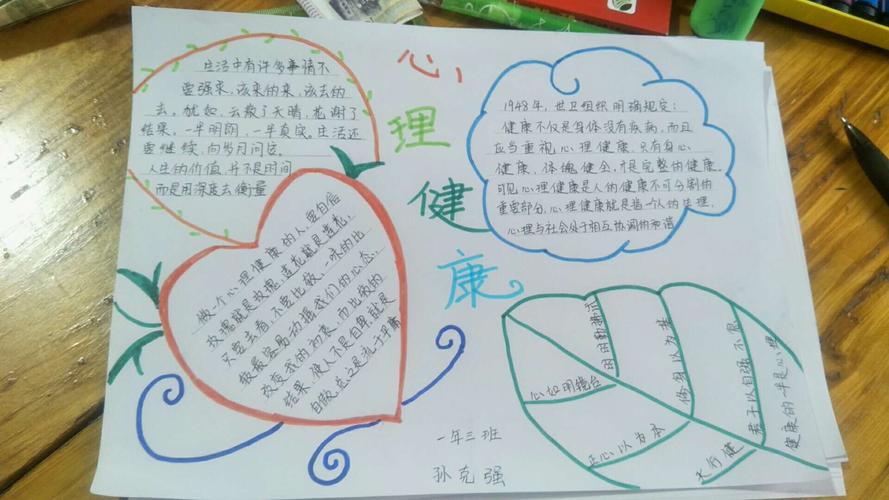 心理健康
生活中有许多事情不
要强求，该来的来，该去的
去。犹如，云散了天晴，花谢了
结果，一半明朗，一半真实。生活还
要继续，向岁月问安。
人生的价值，并不是时间
而是用深度去衡量
做个心理健康的人，要自信
玫瑰就是玫瑰，莲花就是莲花，
只要去看，不要比较，一味的比
较最容易动摇我们的心态，
改变我的初衷，而比较的
结果，使人不是自卑，就是
自傲，总之是流于平庸
1948年，世卫组织明确规定：
健康不仅是身体没有疾病，而且
应当重视心理健康，只有身心
健康、体魄健全，才是完整的健康。
可见心理健康是人的健康不可分割的
重要部分，心理健康就是指一个人的生理、
心理与社会处于相互协调的和谐
心如明镜台
时时勤拂拭
修身以为基
君子以自强不息
健康的一半是心理
正心以为本
天行健
一年三班
孙克强